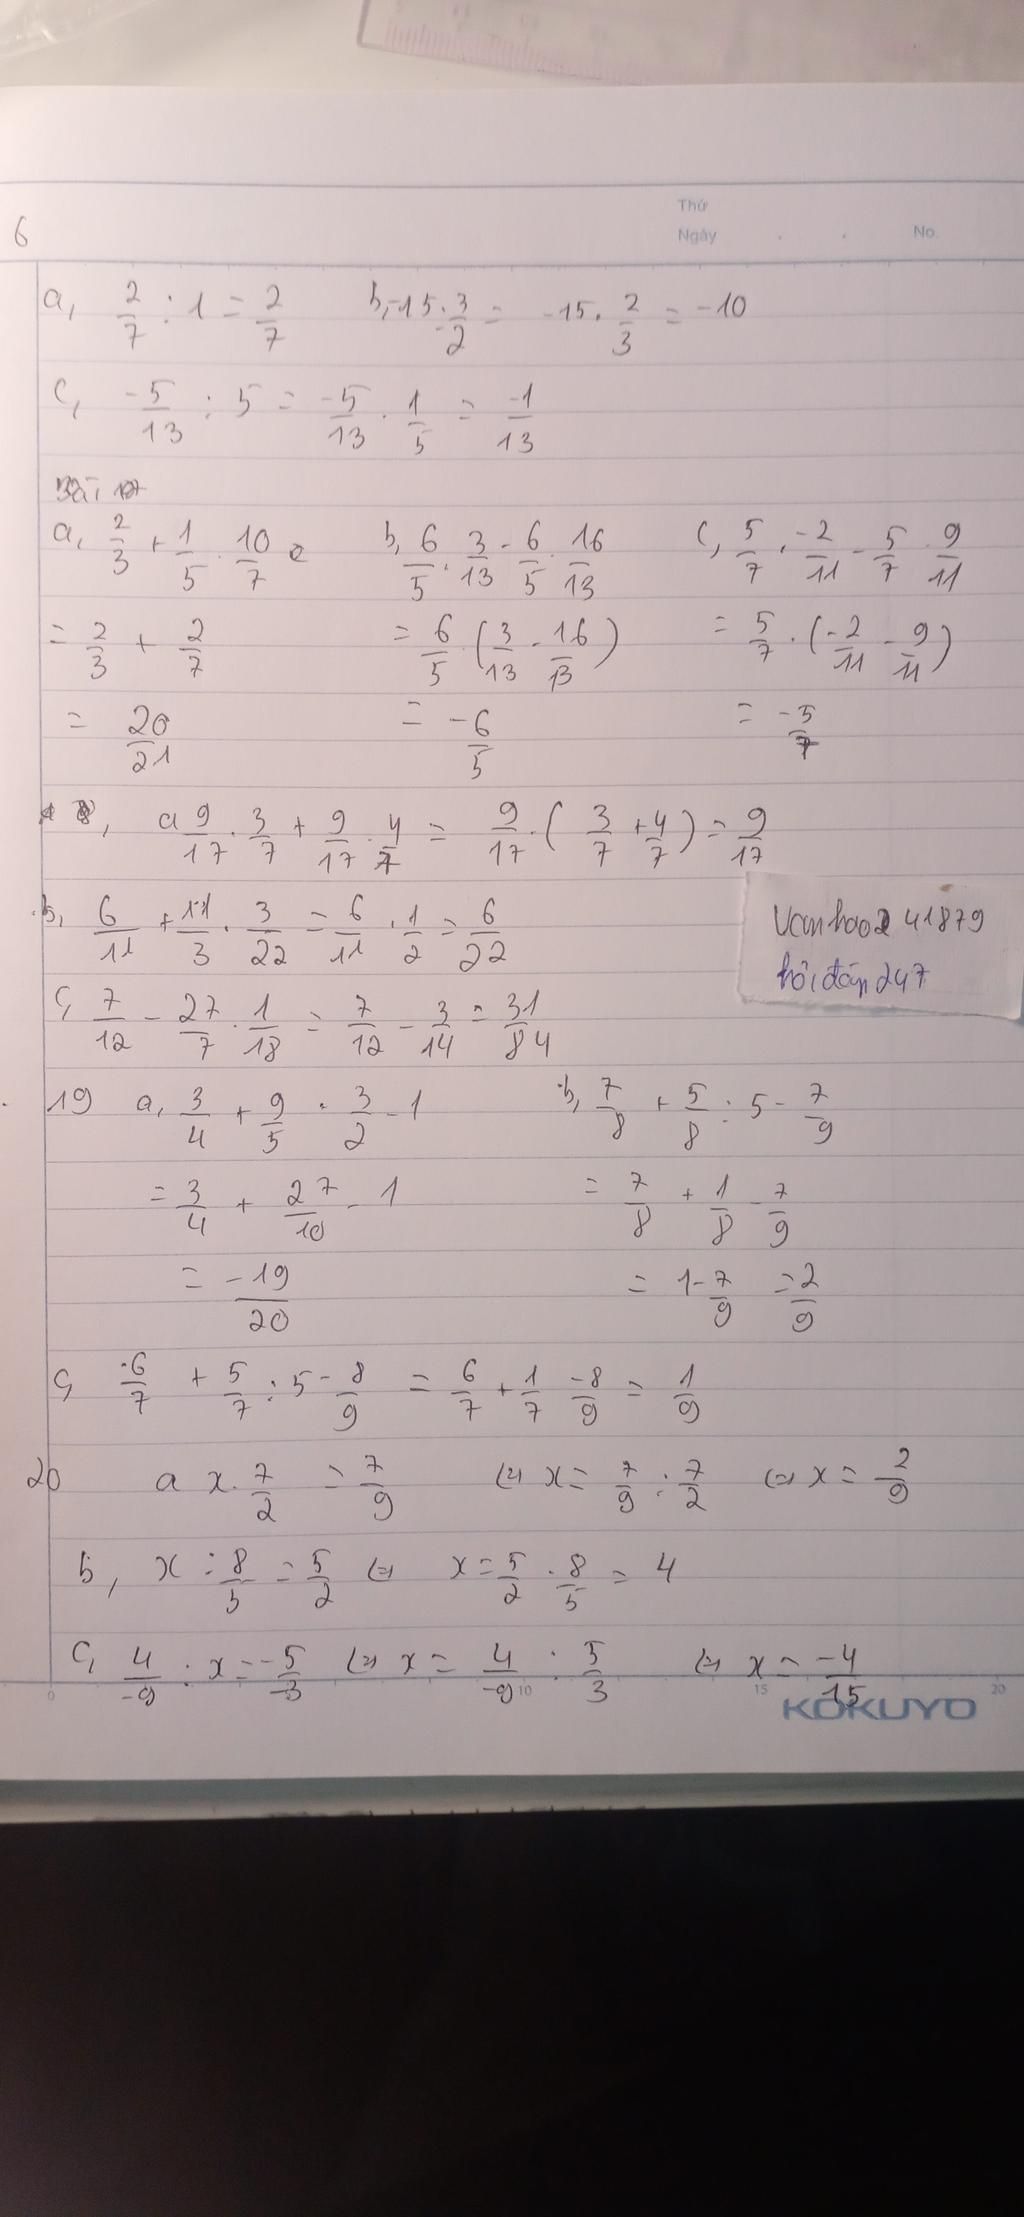 Thứ
6 Ngày . . No.
a, 2/7 : 1 = 2/7 b, -15 : 3/2 = -15 . 2/3 = -10
c, -5/13 : 5 = -5/13 . 1/5 = -1/13
Bài 17
a, 2/3 + 1/5 . 10/7 b, 6/5 . 3/13 - 6/5 . 16/13 c, 5/7 . -2/11 - 5/7 . 9/11
= 2/3 + 2/7 = 6/5 . (3/13 - 16/13) = 5/7 . (-2/11 - 9/11)
= 20/21 = -6/5 = -5/7
8, a 9/17 . 3/7 + 9/17 . 4/7 = 9/17 . (3/7 + 4/7) = 9/17
b, 6/11 + 11/3 . 3/22 = 6/11 . 1/2 = 6/22
Vanhao2 41879
hỏi đáp 247
c, 7/12 - 27/7 . 1/18 = 7/12 - 3/14 = 31/84
19 a, 3/4 + 9/5 . 3/2 - 1 b, 7/8 + 5/8 : 5 - 7/9
= 3/4 + 27/10 - 1 = 7/8 + 1/8 - 7/9
= -19/20 = 1 - 7/9 = 2/9
c, 6/7 + 5/7 : 5 - 8/9 = 6/7 + 1/7 - 8/9 = 1/9
20 a x . 7/2 = 7/9 (=) x = 7/9 : 7/2 (=) x = 2/9
b, x : 8/5 = 5/2 (=) x = 5/2 . 8/5 = 4
c, 4/-9 : x = -5/-3 (=) x = 4/-9 : 5/3 (=) x = -4/15
0 10 15 20
KOKUYO